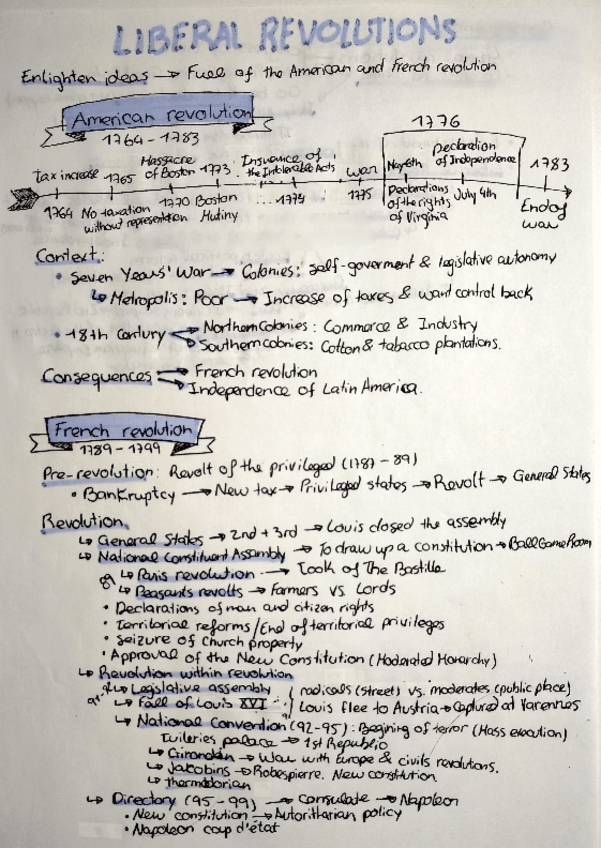 LIBERAL REVOLUTIONS
Enlighten ideas → Fuel of the American and French revolution
American revolution
1764 - 1783
1776
Tax increase 1765 Massacre of Boston 1773 Insuance of the Intolerable Acts war May 6th Declaration of Independence 1783
1764 No taxation without representation 1770 Boston Mutiny ... 1774 1775 Declarations of the rights of Virginia July 4th End of war
Context:
• Seven Years' War → Colonies: self-goverment & legislative autonomy
↳ Metropolis: Poor → Increase of taxes & want control back
• 18th Century → Northern Colonies: Commerce & Industry
→ Southern Colonies: Cotton & tabacco plantations.
Consequences → French revolution
→ Independence of Latin America.
French revolution
1789 - 1799
Pre-revolution: Revolt of the privileged (1787 - 89)
• Bankruptcy → New tax → Privileged states → Revolt → General States
Revolution
↳ General States → 2nd + 3rd → Louis closed the assembly
↳ National Constituent Assembly → To draw up a constitution → Ball Game Room
89 ↳ Paris revolution → Took of The Bastille
↳ Peasants revolts → Farmers vs. Lords
• Declarations of man and citizen rights
• Territorial reforms / End of territorial privileges
• Seizure of Church property
• Approval of the New Constitution (Moderated Monarchy)
↳ Revolution within revolution
↳ Legislative assembly radicals (street) vs. moderates (public place)
↳ Fall of Louis XVI Louis flee to Austria → Captured at Varennes
↳ National Convention (92-95): Begining of terror (Mass execution)
Tuileries palace → 1st Republic
↳ Girondin → War with Europe & civils revolutions.
↳ Jacobins → Robespierre. New constitution.
↳ thermidorian
↳ Directory (95 - 99) → Consulate → Napoleon
• New constitution → Autoritharian policy
• Napoleon coup d'état